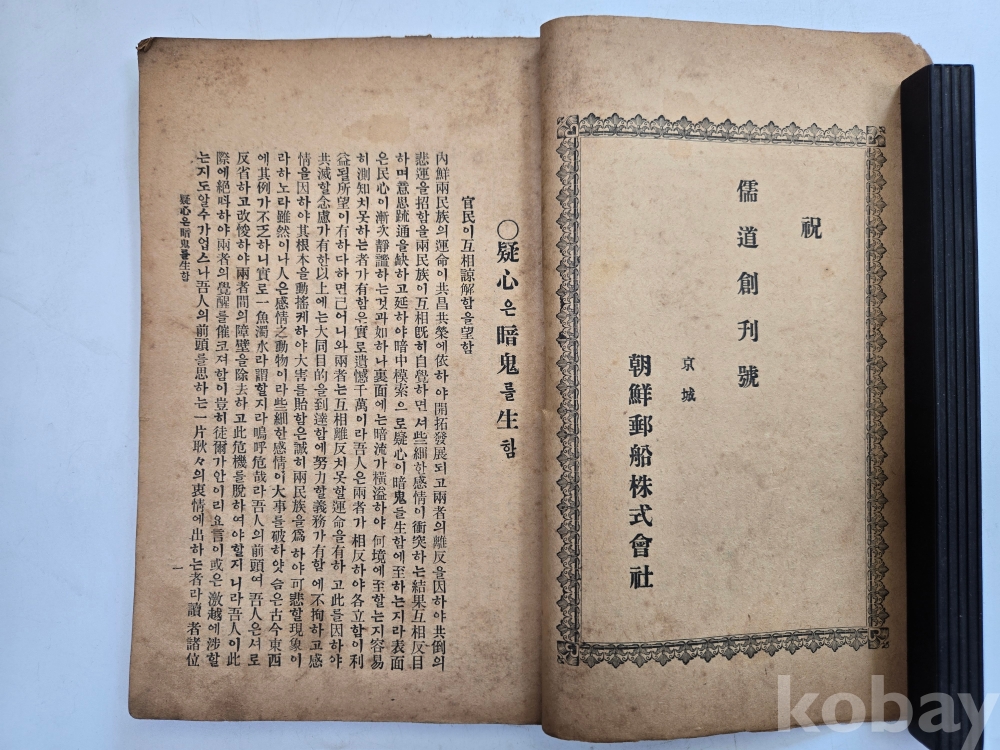 祝
儒道創刊號
京城
朝鮮郵船株式會社
○疑心은暗鬼를生함
官民이互相諒解함을望함
內鮮兩民族의運命이共昌共榮에依하야開拓發展되고兩者의離反을因하야共倒의
悲運을招함을兩民族이互相旣히自覺하면셔些細한感情이衝突하는結果互相反目
하며意思疏通을缺하고延하야暗中模索으로疑心이暗鬼를生함에至하는지라表面
은民心이漸次靜謐하는것과如하나裏面에는暗流가橫溢하야何境에至할는지容易
히測知치못하는者가有함은實로遺憾千萬이라吾人은兩者가相反하야各立함이利
益될所望이有하다하면已어니와兩者는互相離反치못할運命을有하고此를因하야
共滅할念慮가有한以上에는大同目的을到達함에努力할義務가有함에不拘하고感
情을因하야其根本을動搖케하야大害를貽함은誠히兩民族을爲하야可悲할現象이
라하노라雖然이나人은感情之動物이라些細한感情이大事를破하얏슴은古今東西
에其例가不乏하니實로一魚濁水라謂할지라嗚呼危哉라吾人의前頭여吾人은셔로
反省하고改悛하야兩者間의障壁을除去하고此危機를脫하여야할지니라吾人이此
際에絕呌하야兩者의覺醒을催코져함이豈히徒爾가안이리요言이或은激越에涉할
는지도알수가업스나吾人의前頭를思하는一片耿々의衷情에出하는者라讀者諸位
疑心은暗鬼를生함
一
kobay